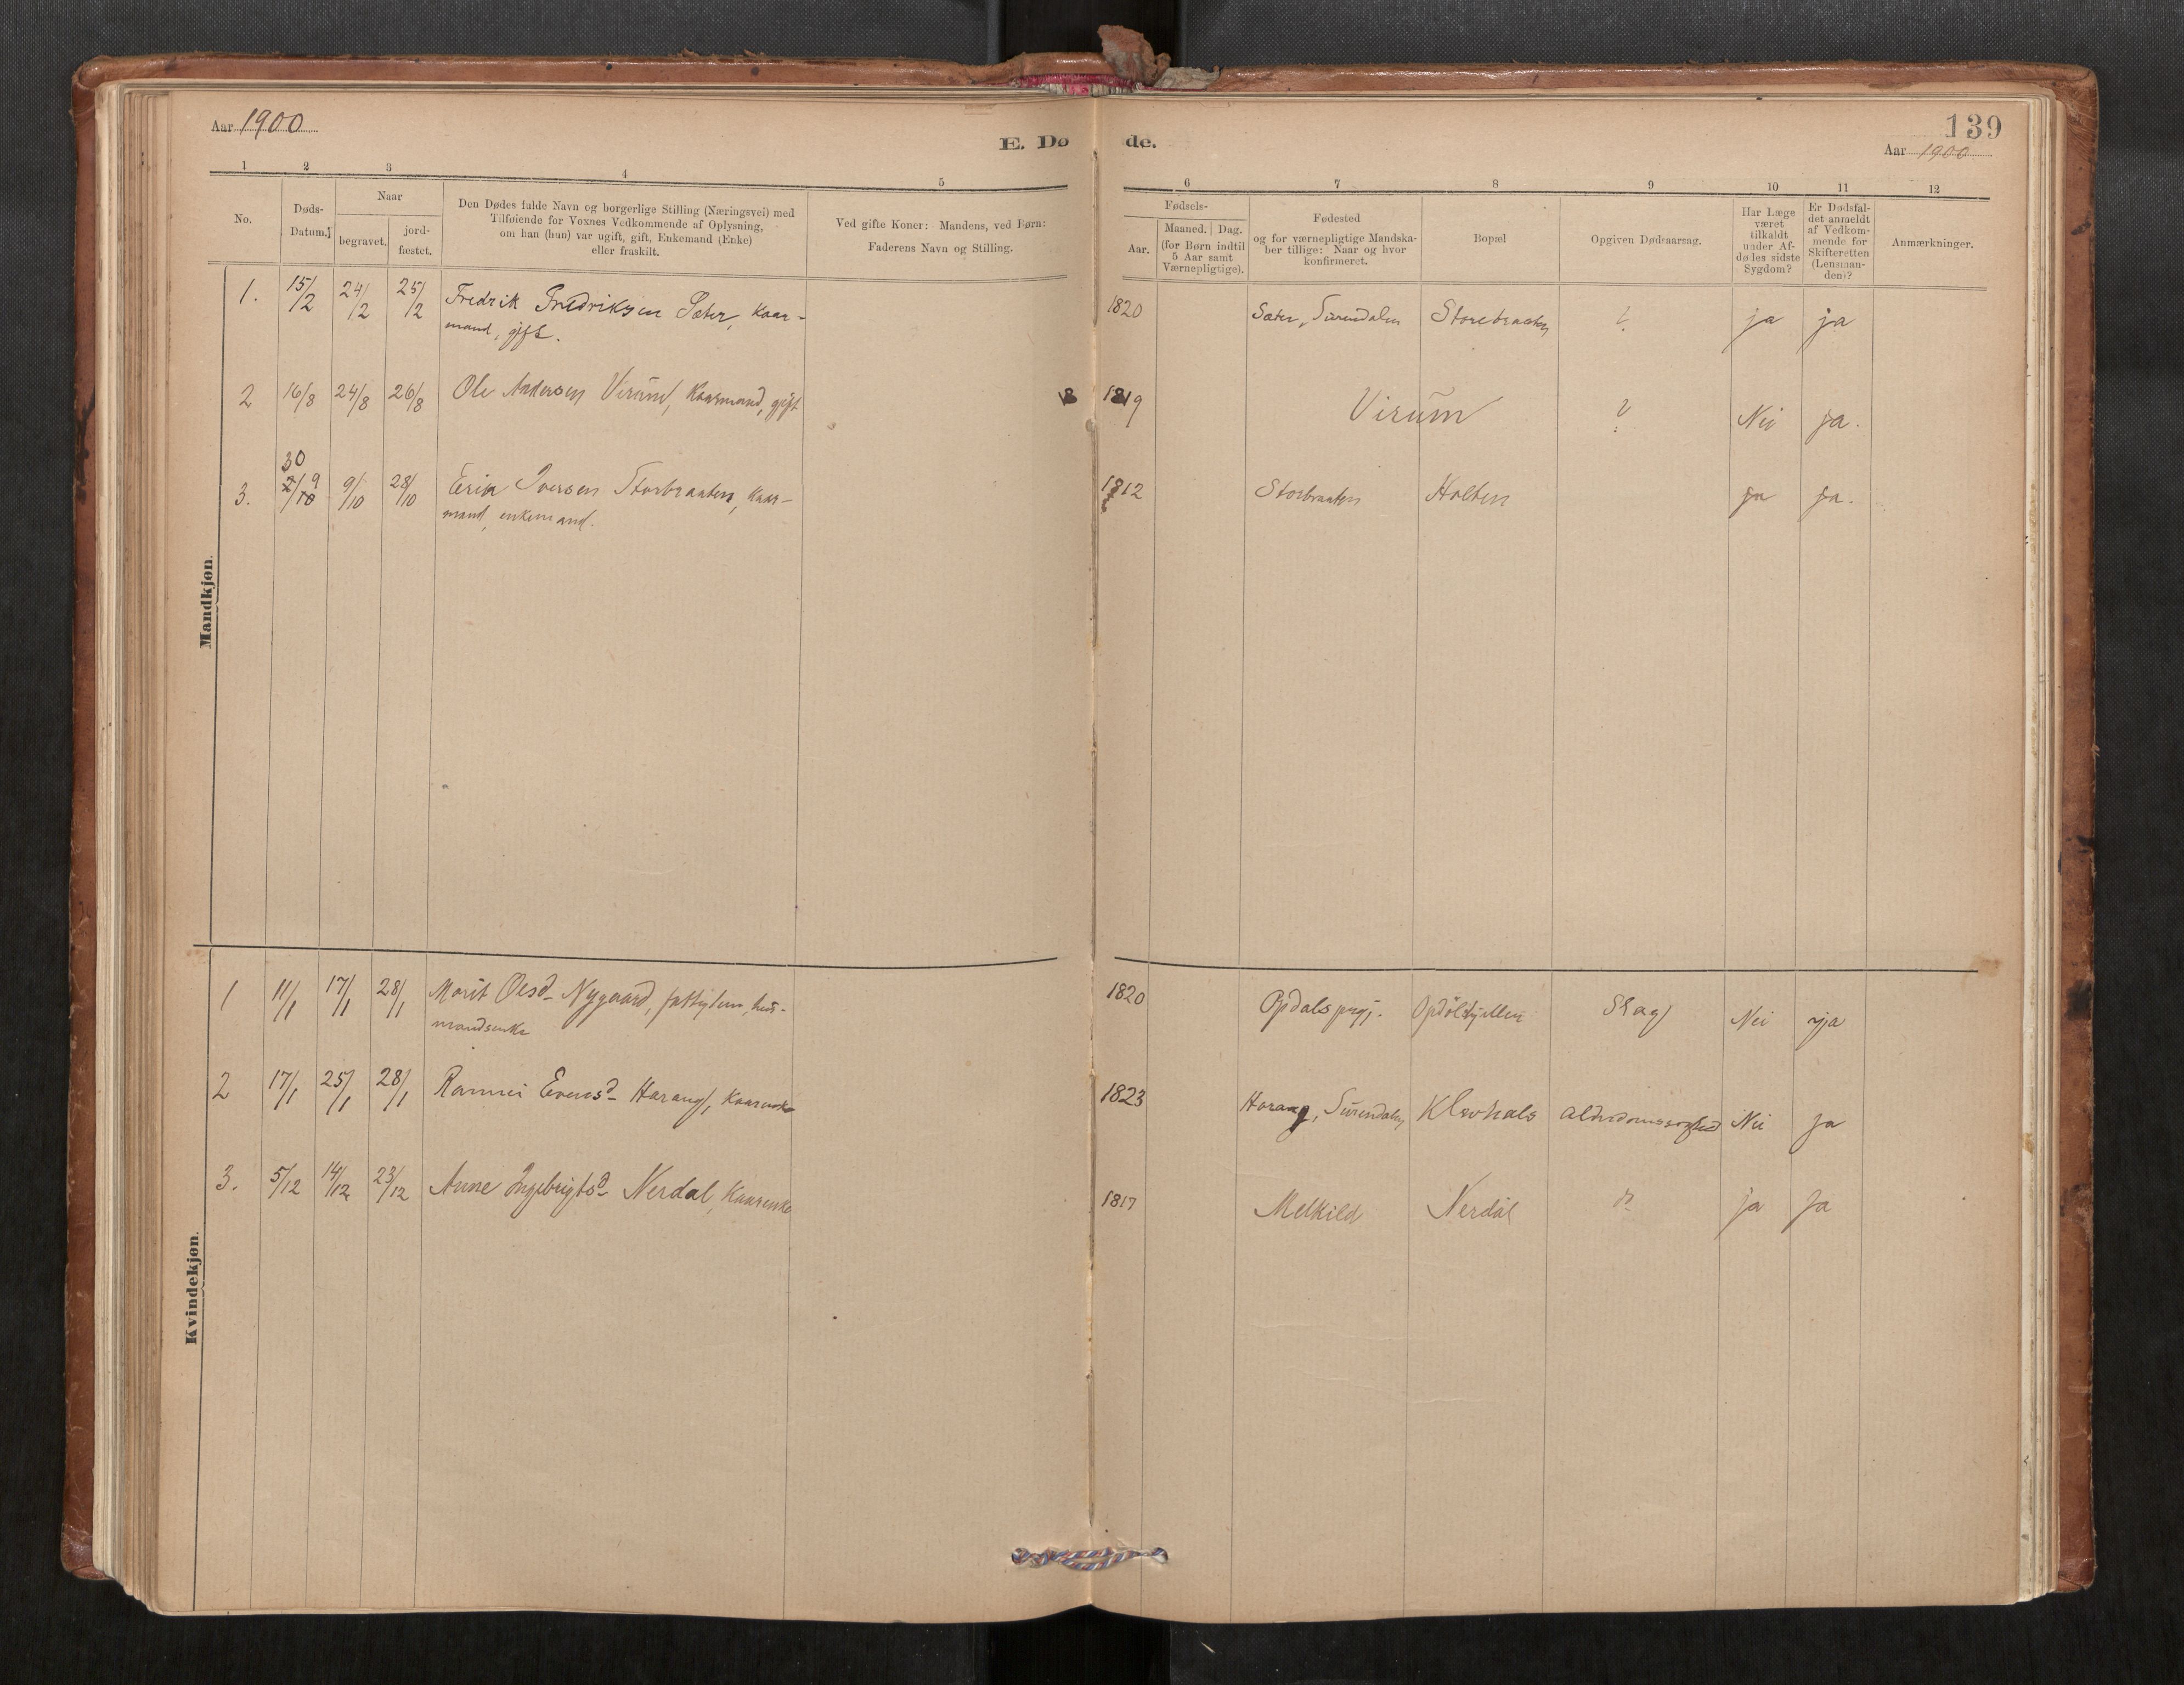 Aar 1900
E. Døde.
139
Aar 1900
1 2 3 4 5 6 7 8 9 10 11 12
No.
Døds-
Datum.
Naar
begravet.
jord-
fæstet.
Den Dødes fulde Navn og borgerlige Stilling (Næringsvei) med
Tilføiende for Voxnes Vedkommende af Oplysning,
om han (hun) var ugift, gift, Enkemand (Enke)
eller fraskilt.
Ved gifte Koner: Mandens, ved Børn:
Faderens Navn og Stilling.
Fødsels-
Aar.
Maaned. Dag.
(for Børn indtil
5 Aar samt
Værnepligtige).
Fødested
og for værnepligtige Mandska-
ber tillige: Naar og hvor
konfirmeret.
Bopæl
Opgiven Dødsaarsag.
Har Læge
været
tilkaldt
under Af-
dødes sidste
Sygdom?
Er Dødsfal-
det anmeldt
af Vedkom-
mende for
Skifteretten
(Lensman-
den)?
Anmærkninger.
Mandkjøn.
1. 15/2 24/2 25/2 Fredrik Fredriksen Sæter, Kaar- 1820 Sæter, Surendalen Storebraaten ? ja ja
mand, gift.
2 16/8 24/8 26/8 Ole Andersen Virum, Kaarmand, gift 1819 Virum ? Nei ja.
30
3. 2/10 9 9/10 28/10 Erik Iversen Storbraaten, Kaar- 1812 Storbraaten Holten ja ja.
mand, enkemand.
Kvindekjøn.
1 11/1 17/1 28/1 Marit Olsd. Nygaard, fattiglem, hus- 1820 Opdals prgj. Opdölstjellen Slag Nei ja
mandsenke
2 17/1 25/1 28/1 Rannei Evensd. Harang, Kaarenke 1823 Harang, Surendalen Klevhals Alderdomssvaghed Nei ja
3. 5/12 14/12 23/12 Anne Ingebrigtsd. Nerdal, Kaarenke 1817 Melkild Nerdal ? ja ja